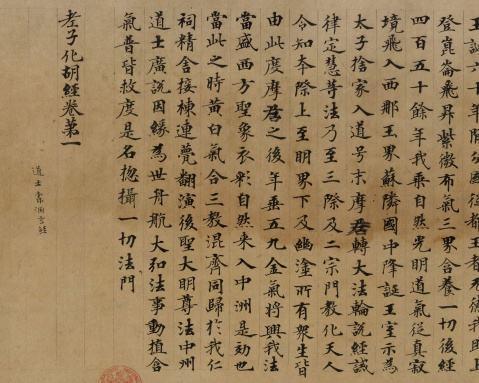 登崑崙飛昇紫微布氣三界含養一切後經
四百五十餘年我乘自然光明道氣從真寂
境飛入西那玉界蘇隣國中降誕王室示為
太子捨家入道号末摩尼轉大法輪說經誡
律定慧等法乃至三際及二宗門教化天人
令知本際上至明界下及幽塗所有衆生皆
由此度摩尼之後年垂五九金氣將興我法
當盛西方聖象衣彩自然来入中洲是効也
當此之時黄白氣合三教混齊同歸於我仁
祠精舍接棟連甍翻演後聖大明尊法中州
道士廣說因緣為世舟航大弘法事動植含
氣普皆救度是名揔攝一切法門
老子化胡經卷第一
道士